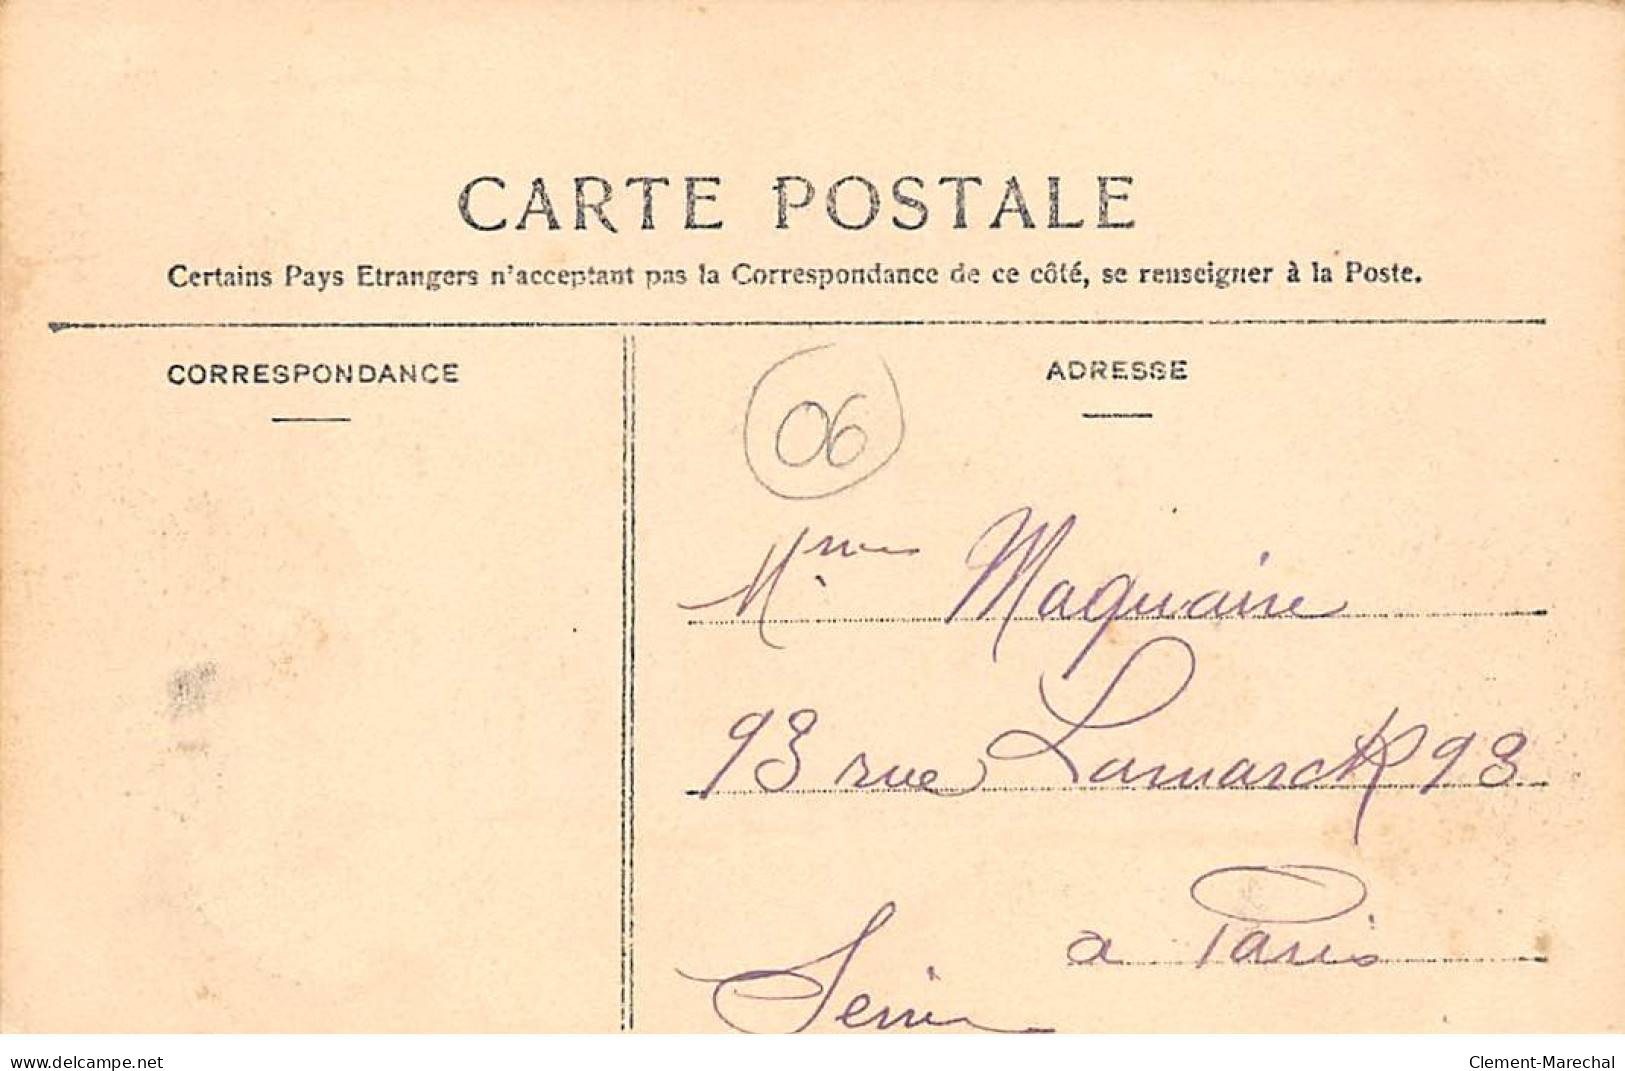 CARTE POSTALE
Certains Pays Etrangers n'acceptant pas la Correspondance de ce côté, se renseigner à la Poste.
CORRESPONDANCE
ADRESSE
06
Mme Maquaire
93 rue Lamarck 93
a Paris
Seine
www.delcampe.net
Clement-Marechal